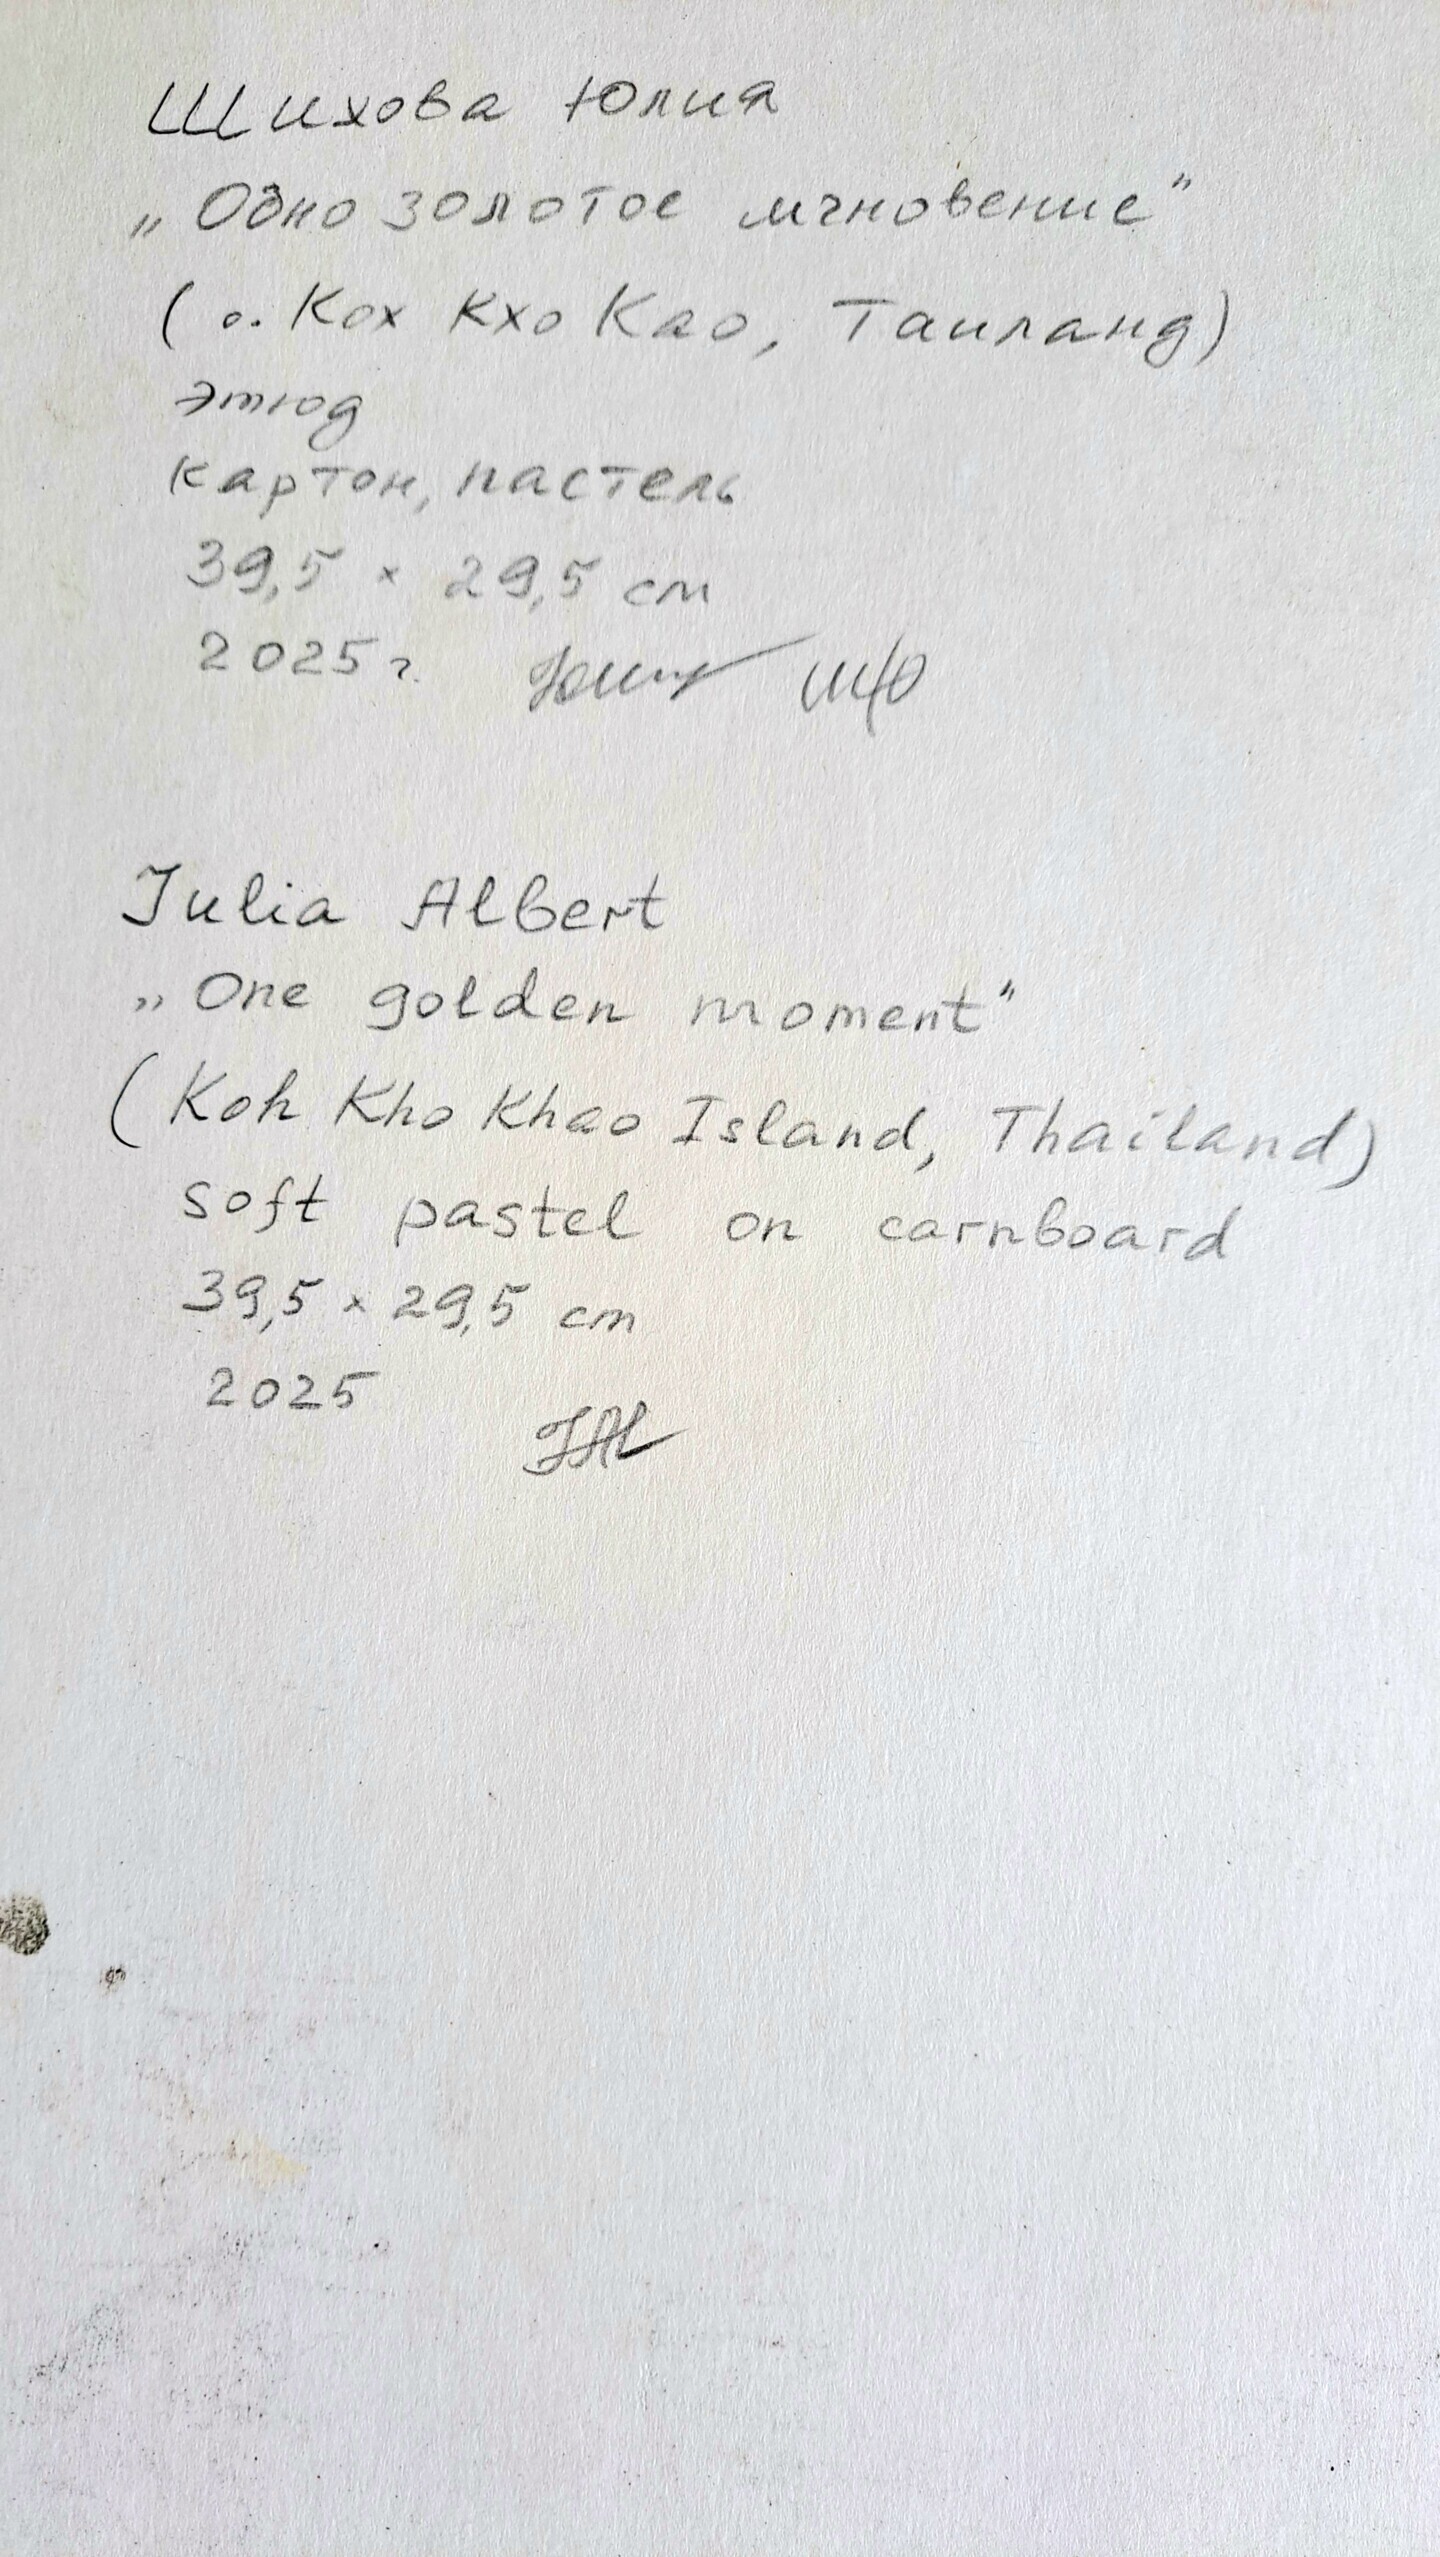 Шихова Юлия
„Одно золотое мгновение”
( о. Кох Кхо Као, Таиланд)
этюд
картон, пастель
39,5 × 29,5 см
2025 г.
Julia Albert
„One golden moment”
(Koh Kho Khao Island, Thailand)
soft pastel on carnboard
39,5 × 29,5 cm
2025